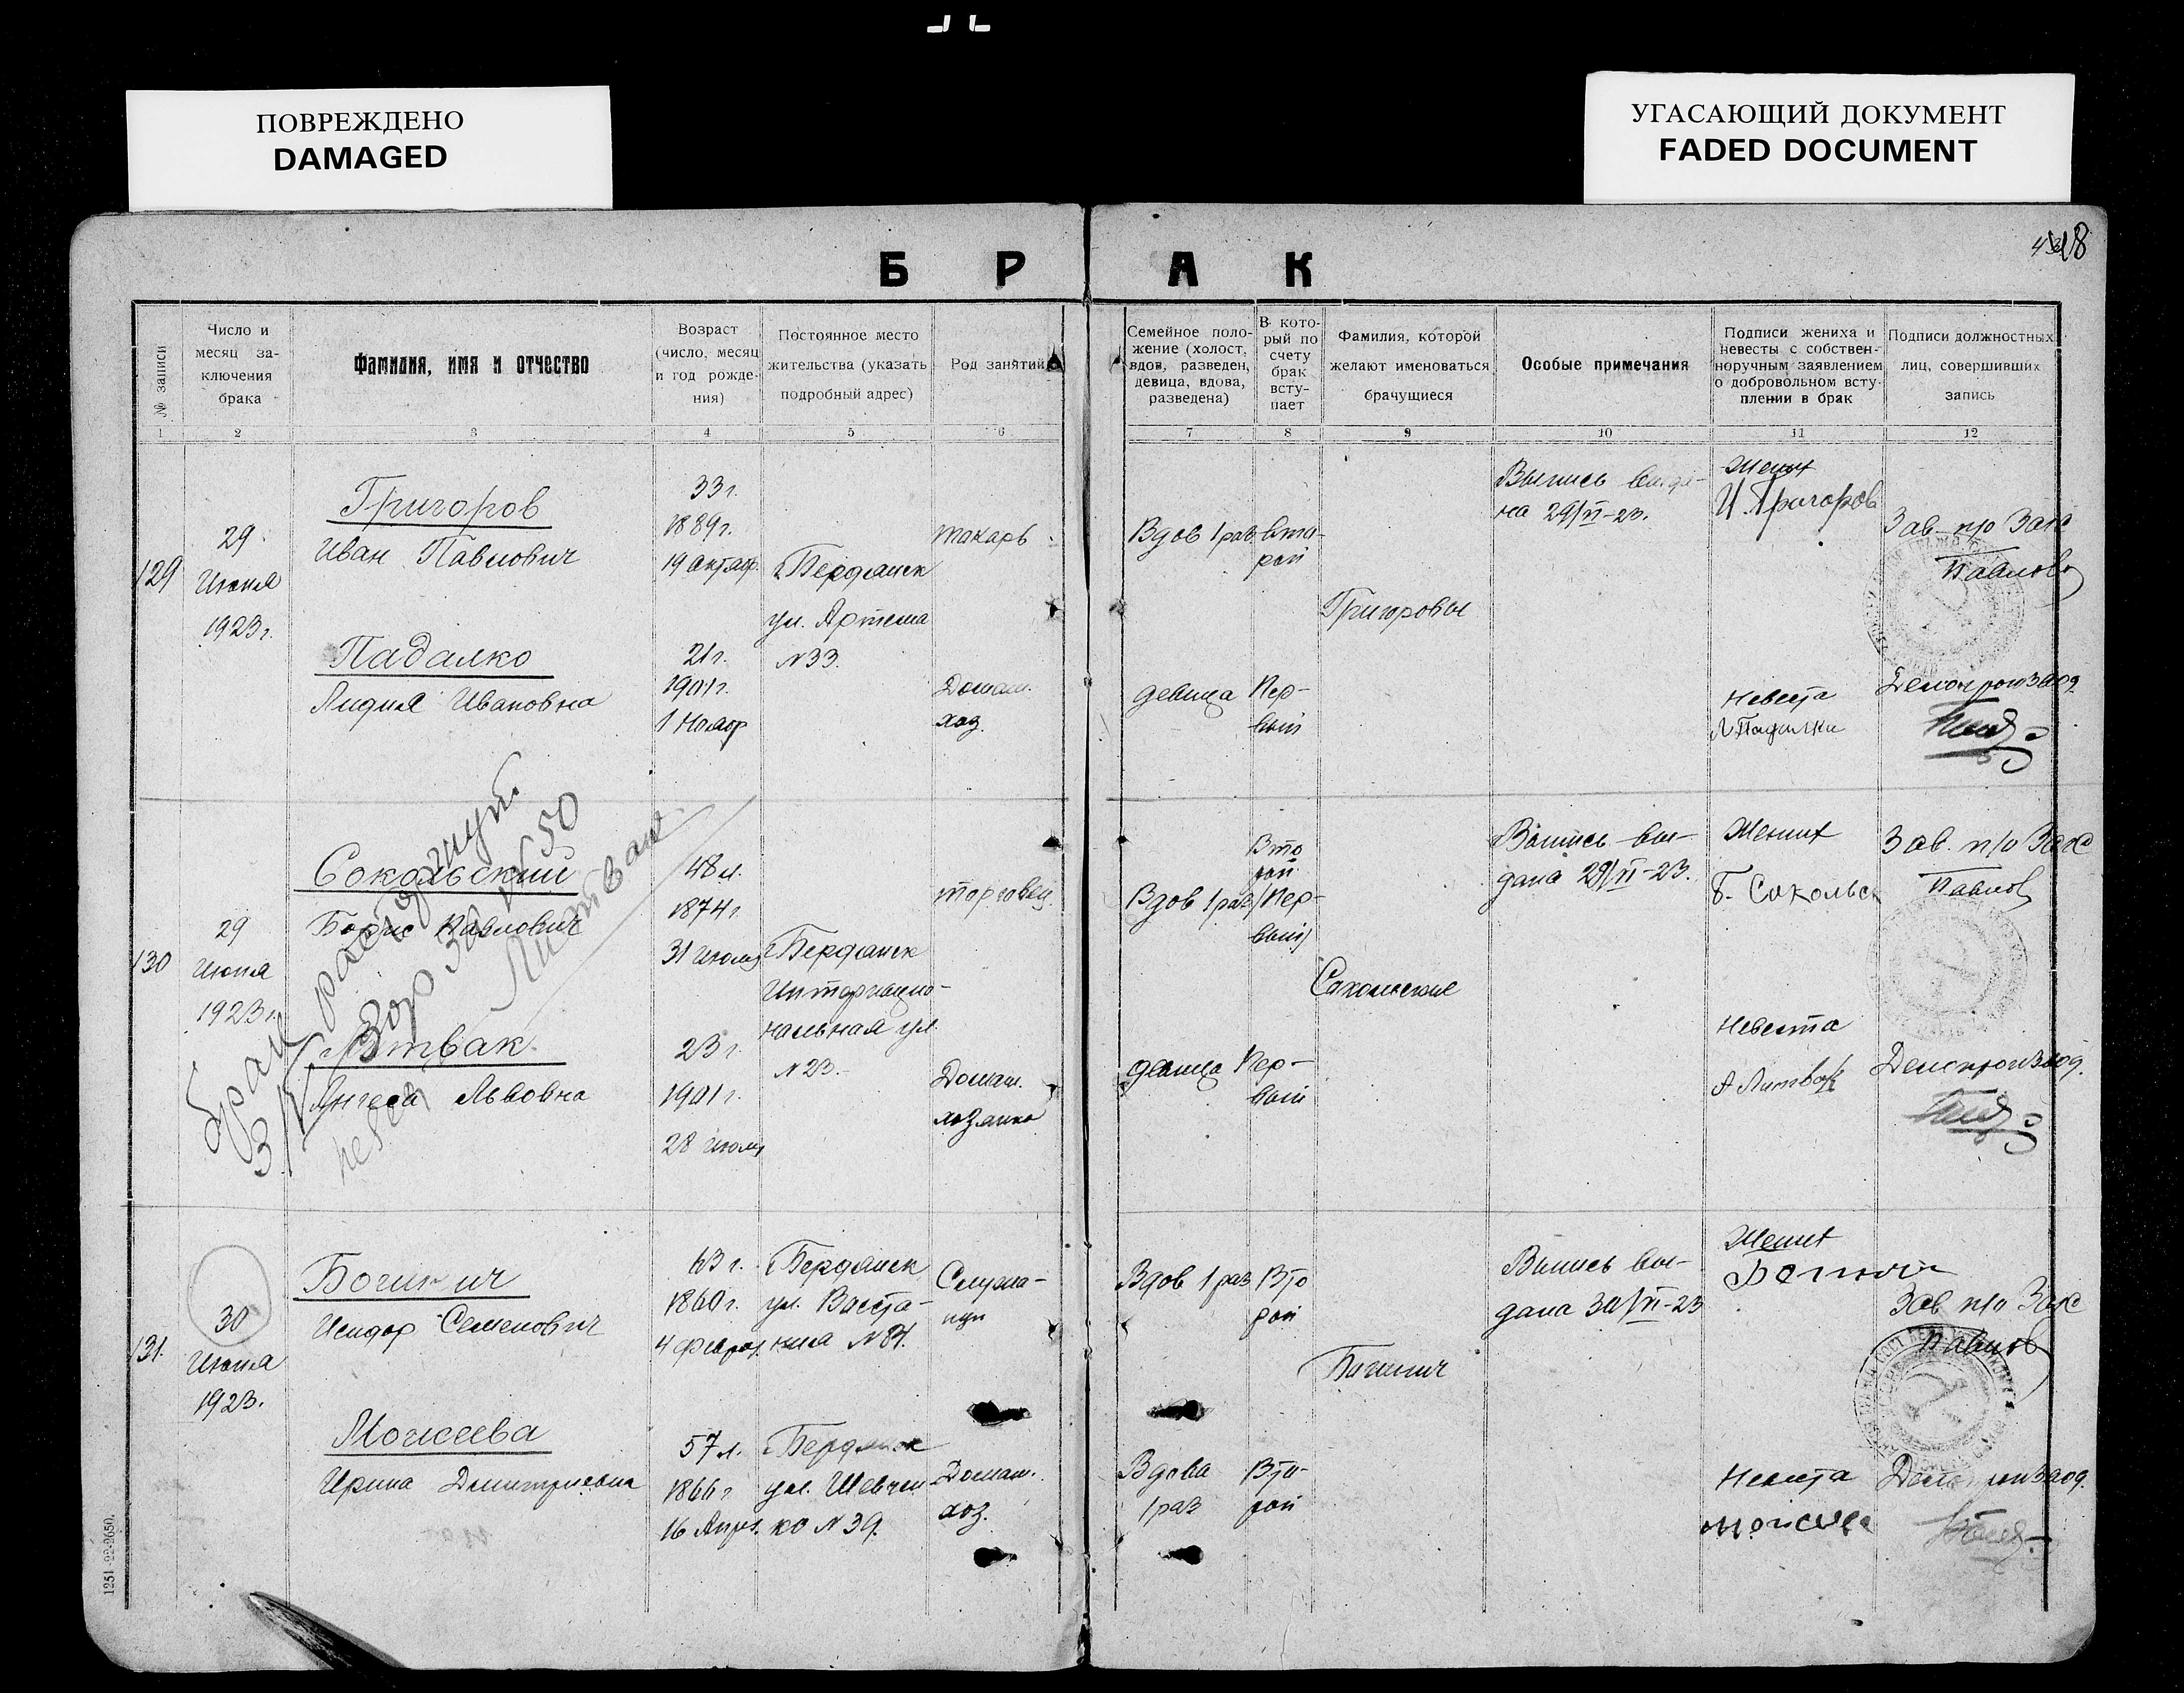 ПОВРЕЖДЕНО
DAMAGED
УГАСАЮЩИЙ ДОКУМЕНТ
FADED DOCUMENT
Б Р А К
№ записи
Число и
месяц за-
ключения
брака
Фамилия, имя и отчество
Возраст
(число, месяц
и год рожде-
ния)
Постоянное место
жительства (указать
подробный адрес)
Род занятий
Семейное поло-
жение (холост,
вдов, разведен,
девица, вдова,
разведена)
В кото-
рый по
счету
брак
всту-
пает
Фамилия, которой
желают именоваться
брачущиеся
Особые примечания
Подписи жениха и
невесты с собствен-
норучным заявлением
о добровольном всту-
плении в брак
Подписи должностных
лиц, совершивших
запись
1 2 3 4 5 6 7 8 9 10 11 12
129
29
Июня
1923 г.
Григоров
Иван Павлович
33 г.
1889 г.
19 октяб.
г. Бердянск
ул. Артема
N 33.
токарь
Вдов 1 раз
вто-
рой
Григоровы
Выпись выда-
на 29/VI-23.
Жених
И. Григоров
Зав. п/о Загс
Павлов
Падалко
Лидия Ивановна
21 г.
1901 г.
1 Нояб
Домаш.
хоз.
девица
Пер-
вый
Невеста
Л Падалки
Делопроизвод.
130
29
Июня
1923 г.
Сокольский
Борис Павлович
48 л.
1874 г.
31 июля
г. Бердянск
Интернацио-
нальная ул.
N 23.
торговец
Вдов 1 раз
Вто
рой
/Пер-
вый/
Сокольские
Выпись вы-
дана 29/VI-23.
Жених
Б. Сокольск
Зав. п/о Загс
Павлов
Литвак
Львовна
23 г.
1901 г.
28 июля
Домаш.
хозяйка
девица
Пер-
вый
Невеста
А Литвак
Делопроизвод.
брак расторгнут
N 50
Литвак
131.
30
Июня
1923.
Богинич
Исидор Семенович
63 г.
1860 г.
4 феврал.
г. Бердянск
ул. Восста-
ния N 84.
Служа-
щий
Вдов 1 раз
Вто
рой
Богинич
Выпись вы-
дана 30/VI-23
Жених
Зав п/о Загс
Павлов
Моисеева
Ирина Димитриевна
57 л.
1866 г
16 Апрел.
г. Бердянск
ул. Шевчен
ко N 39.
Домаш.
хоз.
Вдова
1 раз
Вто-
рой
Невеста
Моисеева
Делопроизвод.
1251-22-2650.